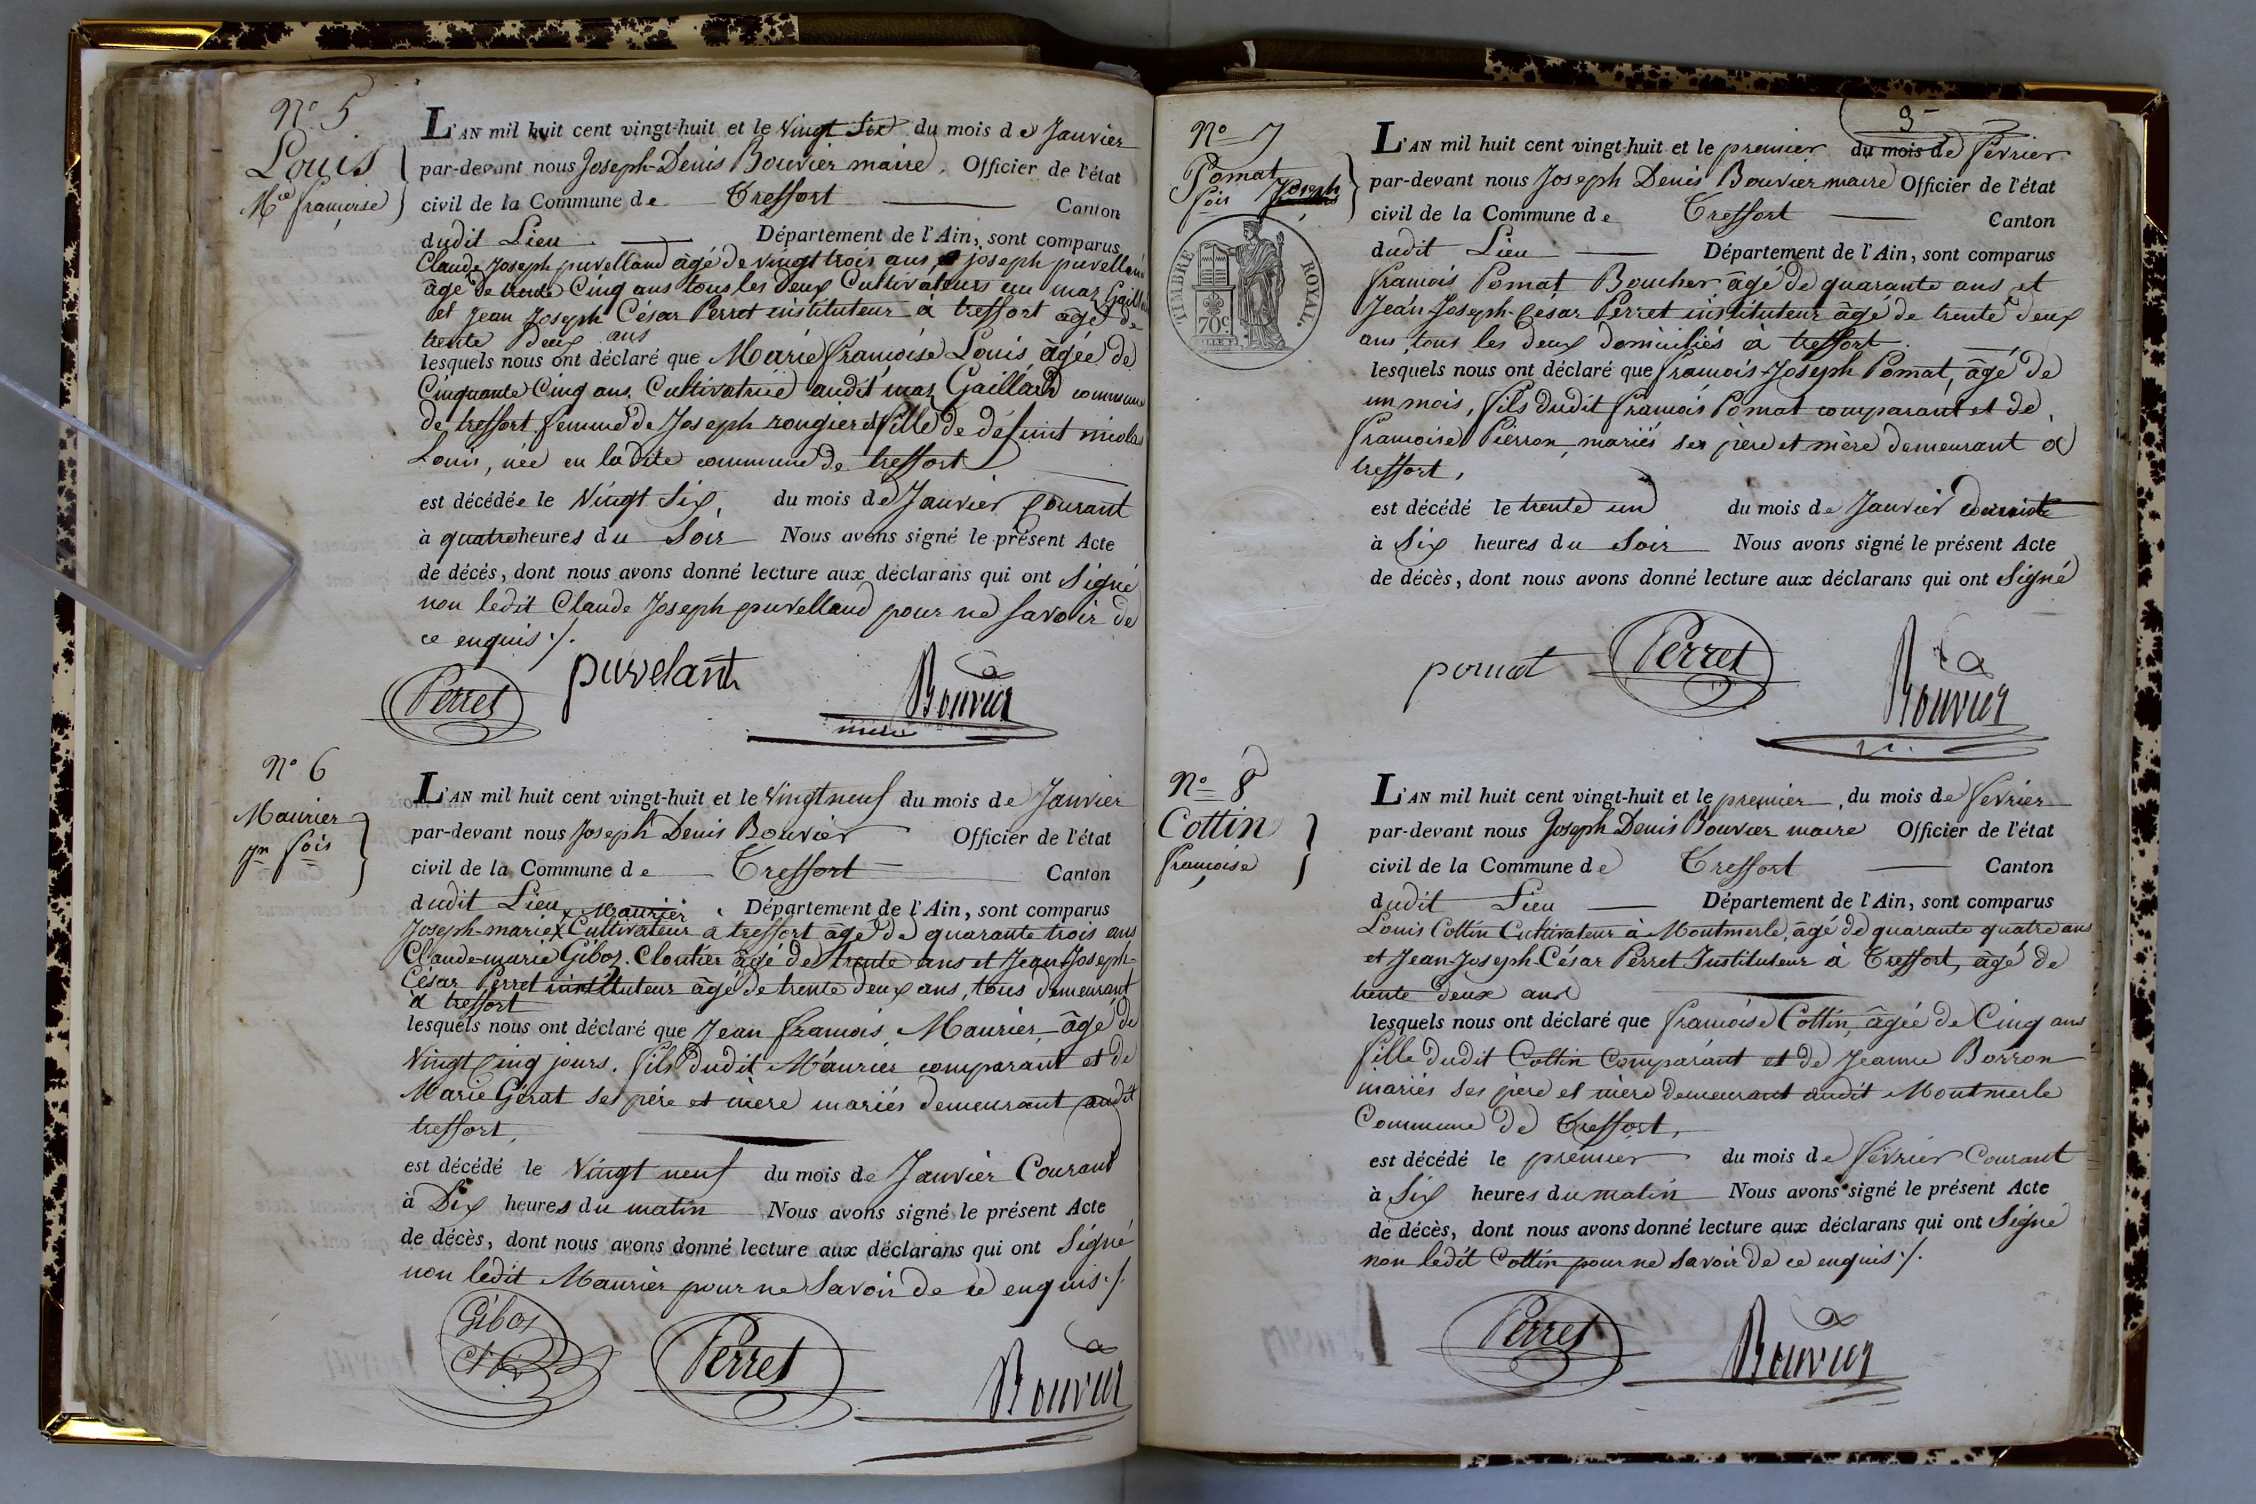 N.° 5
Louis
M.ie françoise
L'AN mil huit cent vingt-huit et le vingt Six du mois de Janvier
par-devant nous Joseph-Denis Bouvier maire, Officier de l'état
civil de la Commune de Treffort Canton
dudit Lieu Département de l'Ain, sont comparus
Claude Joseph puvelland âgé de vingt trois ans, joseph puvelland
âgé de trente Cinq ans tous les deux Cultivateurs au maz Gaillard
et Jean Joseph César Perret instituteur à treffort âgé de
trente deux ans
lesquels nous ont déclaré que Marie françoise Louis âgée de
Cinquante Cinq ans Cultivatrice audit maz Gaillard commune
de treffort femme de Joseph rougier et fille de défunt nicolas
Louis, née en ladite commune de treffort
est décédée le Vingt Six, du mois de Janvier Courant
à quatre heures du Soir Nous avons signé le présent Acte
de décés, dont nous avons donné lecture aux déclarans qui ont Signé
non ledit Claude Joseph puvelland pour ne Savoir de
ce enquis ./.
Perret puvelant Bouvier
N° 6
Maurier
jn fois
L'AN mil huit cent vingt-huit et le Vingt neuf du mois de Janvier
par-devant nous Joseph Denis Bouvier Officier de l'état
civil de la Commune de Treffort Canton
dudit Lieu Maurier Département de l'Ain, sont comparus
Joseph-marie Cultivateur à treffort âgé de quarante trois ans
Claude-marie Gibos. Cloutier âgé de trente ans et Jean-Joseph-
César Perret instituteur âgé de trente deux ans, tous demeurant
à treffort
lesquels nous ont déclaré que Jean françois Maurier, âgé de
Vingt Cinq jours. fils dudit Maurier comparant et de
Marie Gérat ses père et mère mariés demeurant audit
treffort,
est décédé le Vingt neuf du mois de Janvier Courant
à Dix heures du matin Nous avons signé le présent Acte
de décès, dont nous avons donné lecture aux déclarans qui ont Signé
non ledit Maurier pour ne Savoir de ce enquis ./.
Gibos
Perret
Bouvier
N° 7
Pomat
fois Joseph
TIMBRE ROYAL.
70c
L'AN mil huit cent vingt-huit et le premier du mois de février
par-devant nous Joseph Denis Bouvier maire Officier de l'état
civil de la Commune de Treffort Canton
dudit Lieu Département de l'Ain, sont comparus
françois Pomat Boucher âgé de quarante ans et
Jean-Joseph-César Perret instituteur âgé de trente deux
ans tous les deux domiciliés à treffort.
lesquels nous ont déclaré que françois-Joseph Pomat, âgé de
un mois, fils dudit françois Pomat comparant et de
françoise Pierron, mariés ses père et mère demeurant à
treffort,
est décédé le trente un du mois de Janvier
à Six heures du Soir Nous avons signé le présent Acte
de décès, dont nous avons donné lecture aux déclarans qui ont Signé
pomat Perret Bouvier
N° 8
Cottin
françoise
L'AN mil huit cent vingt-huit et le premier, du mois de fevrier
par-devant nous Joseph Denis Bouvier maire Officier de l'état
civil de la Commune de Treffort Canton
dudit Lieu Département de l'Ain, sont comparus
Louis Cottin Cultivateur à Montmerle, âgé de quarante quatre ans
et Jean-Joseph-César Perret Instituteur à Treffort, âgé de
trente deux ans
lesquels nous ont déclaré que françoise Cottin, âgée de Cinq ans
fille dudit Cottin Comparant et de Jeanne Borron
mariés ses père et mère demeurant audit Montmerle
Commune de Treffort,
est décédé le premier du mois de février Courant
à Six heures du matin Nous avons signé le présent Acte
de décès, dont nous avons donné lecture aux déclarans qui ont Signé
non ledit Cottin pour ne savoir de ce enquis ./.
Perret Bouvier